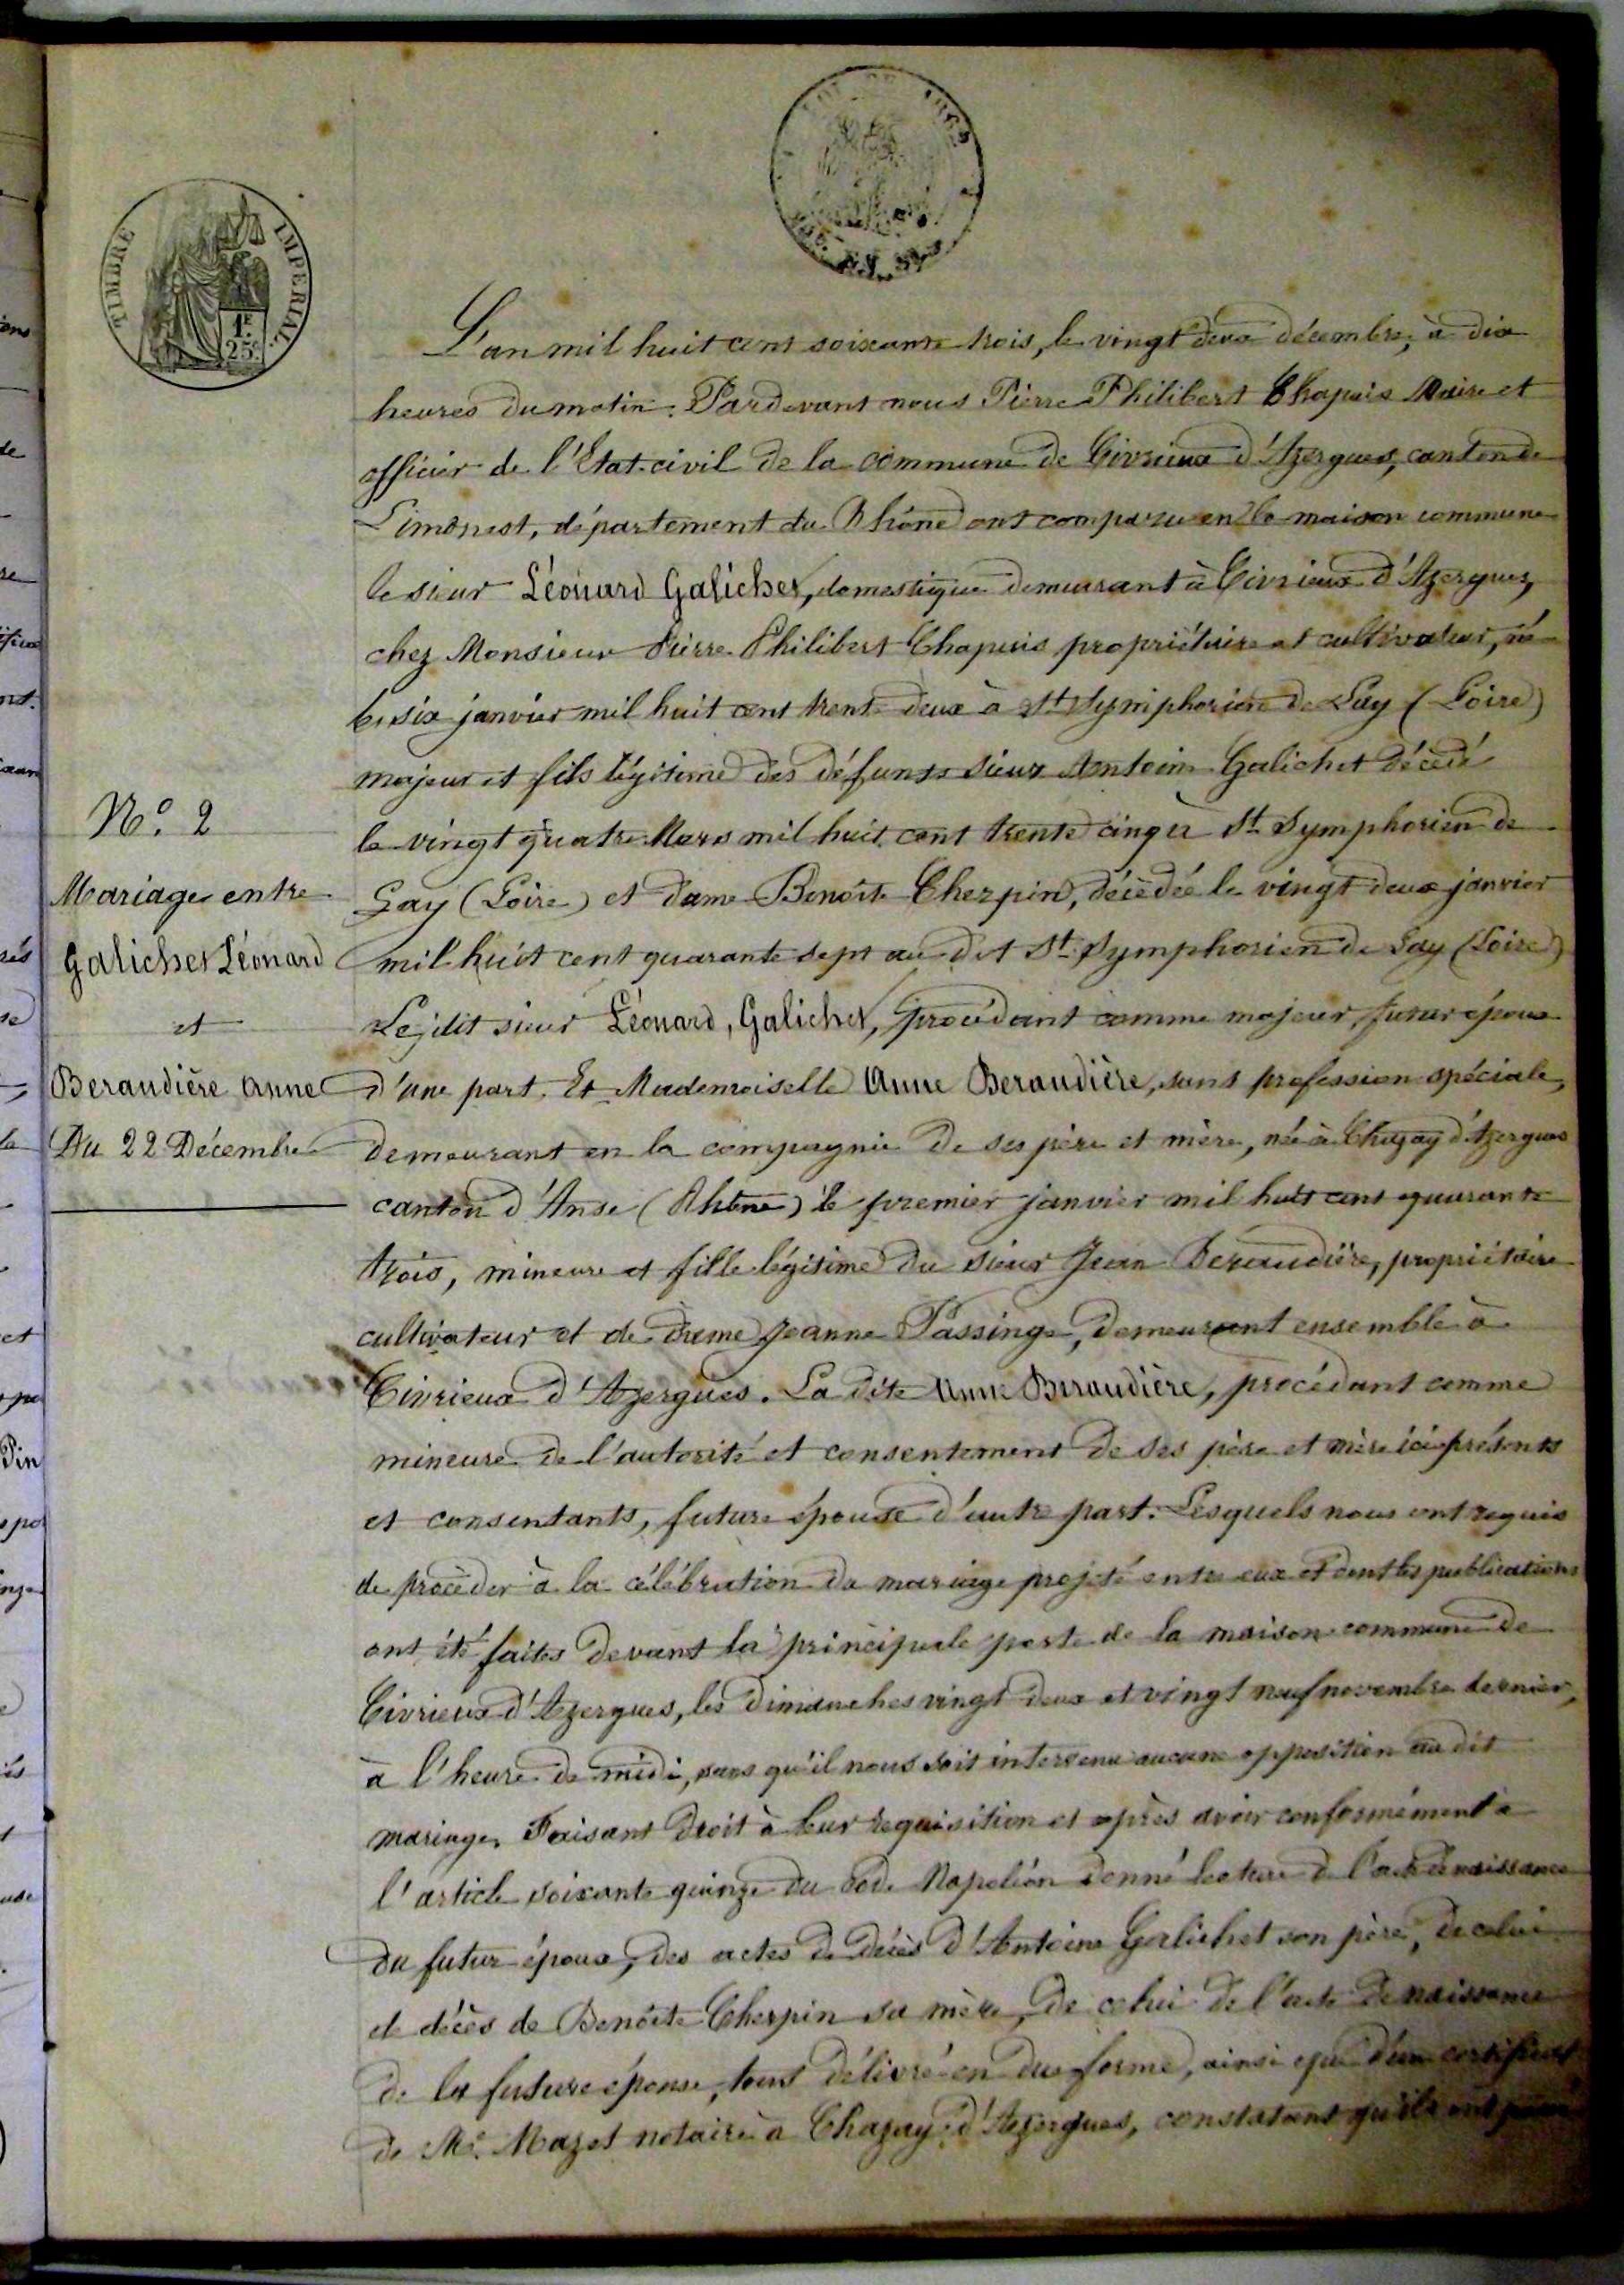 TIMBRE IMPERIAL
1F
25c
L'an mil huit cent soixante trois, le vingt deux décembre, à dix
heures du matin. Pardevant nous Pierre Philibert Chapuis Maire et
officier de l'Etat-civil de la commune de Civrieux d'Azergues, canton de
Limonest, département du Rhône ont comparu en la maison commune
le sieur Léonard Galichet, domestique demeurant à Civrieux d'Azergues,
chez Monsieur Pierre Philibert Chapuis propriétaire et cultivateur, né
le six janvier mil huit cent trente deux à St Symphorien de Lay (Loire)
majeur et fils légitime des défunts sieur Antoine Galichet décédé
le vingt quatre Mars mil huit cent trente cinq à St Symphorien de
Lay (Loire) et dame Benoîte Cherpin, décédée le vingt deux janvier
mil huit cent quarante sept au dit St Symphorien de Lay (Loire)
Le dit sieur Léonard, Galichet, procédant comme majeur, futur époux
d'une part. Et Mademoiselle Anne Beraudière, sans profession spéciale,
demeurant en la compagnie de ses père et mère, née à Chazay d'Azergues
canton d'Anse (Rhône) le premier janvier mil huit cent quarante
trois, mineure et fille légitime du sieur Jean Beraudière, propriétaire
cultivateur et de dame Jeanne Passinge, demeurant ensemble à
Civrieux d'Azergues. La dite Anne Beraudière, procédant comme
mineure de l'autorité et consentement de ses père et mère ici présents
et consentants, future épouse d'autre part. Lesquels nous ont requis
de procéder à la célébration du mariage projeté entre eux et dont les publications
ont été faites devant la principale porte de la maison commune de
Civrieux d'Azergues, les dimanches vingt deux et vingt neuf novembre dernier,
à l'heure de midi, sans qu'il nous soit intervenu aucune opposition au dit
mariage. Faisant droit à leur requisition et après avoir conformément à
l'article soixante quinze du Code Napoléon donné lecture de l'acte de naissance
du futur époux, des actes de décès d'Antoine Galichet son père, de celui
de décès de Benoîte Cherpin sa mère, de celui de l'acte de naissance
de la future épouse, tous délivré en due forme, ainsi que d'un certificat
de Me. Mazet notaire à Chazay d'Azergues, constatant qu'ils ont
No. 2
Mariage entre
Galichet Léonard
et
Beraudière Anne
Du 22 Décembre